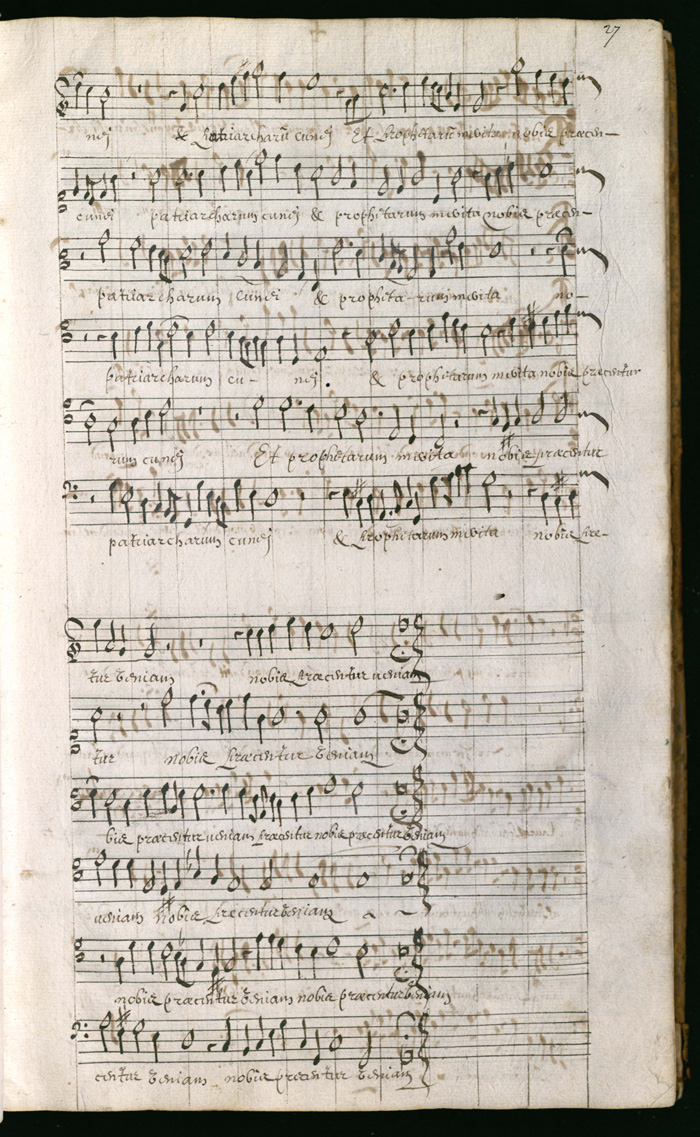 27
nej & Patriarcharū cunej Et Prophetarū merita nobis præcen-
cunej patriarcharum cunej & prophetarum merita nobis præcen-
patriarcharum cunej & propheta-rum merita no-
patriarcharum cu-nej. & prophetarum merita nobis præcentur
rum cunej Et prophetarum merita nobis præcentur
patriarcharum cunej & Prophetarum merita nobis Pre-
tur veniam nobis Præcentur veniam
tur nobis Præcentur veniam
bis præcentur veniam Præcentur nobis præcentur veniam
veniam Nobis Precentur veniam
nobis præcentur veniam nobis præcentur veniam
centur veniam nobis precentur veniam